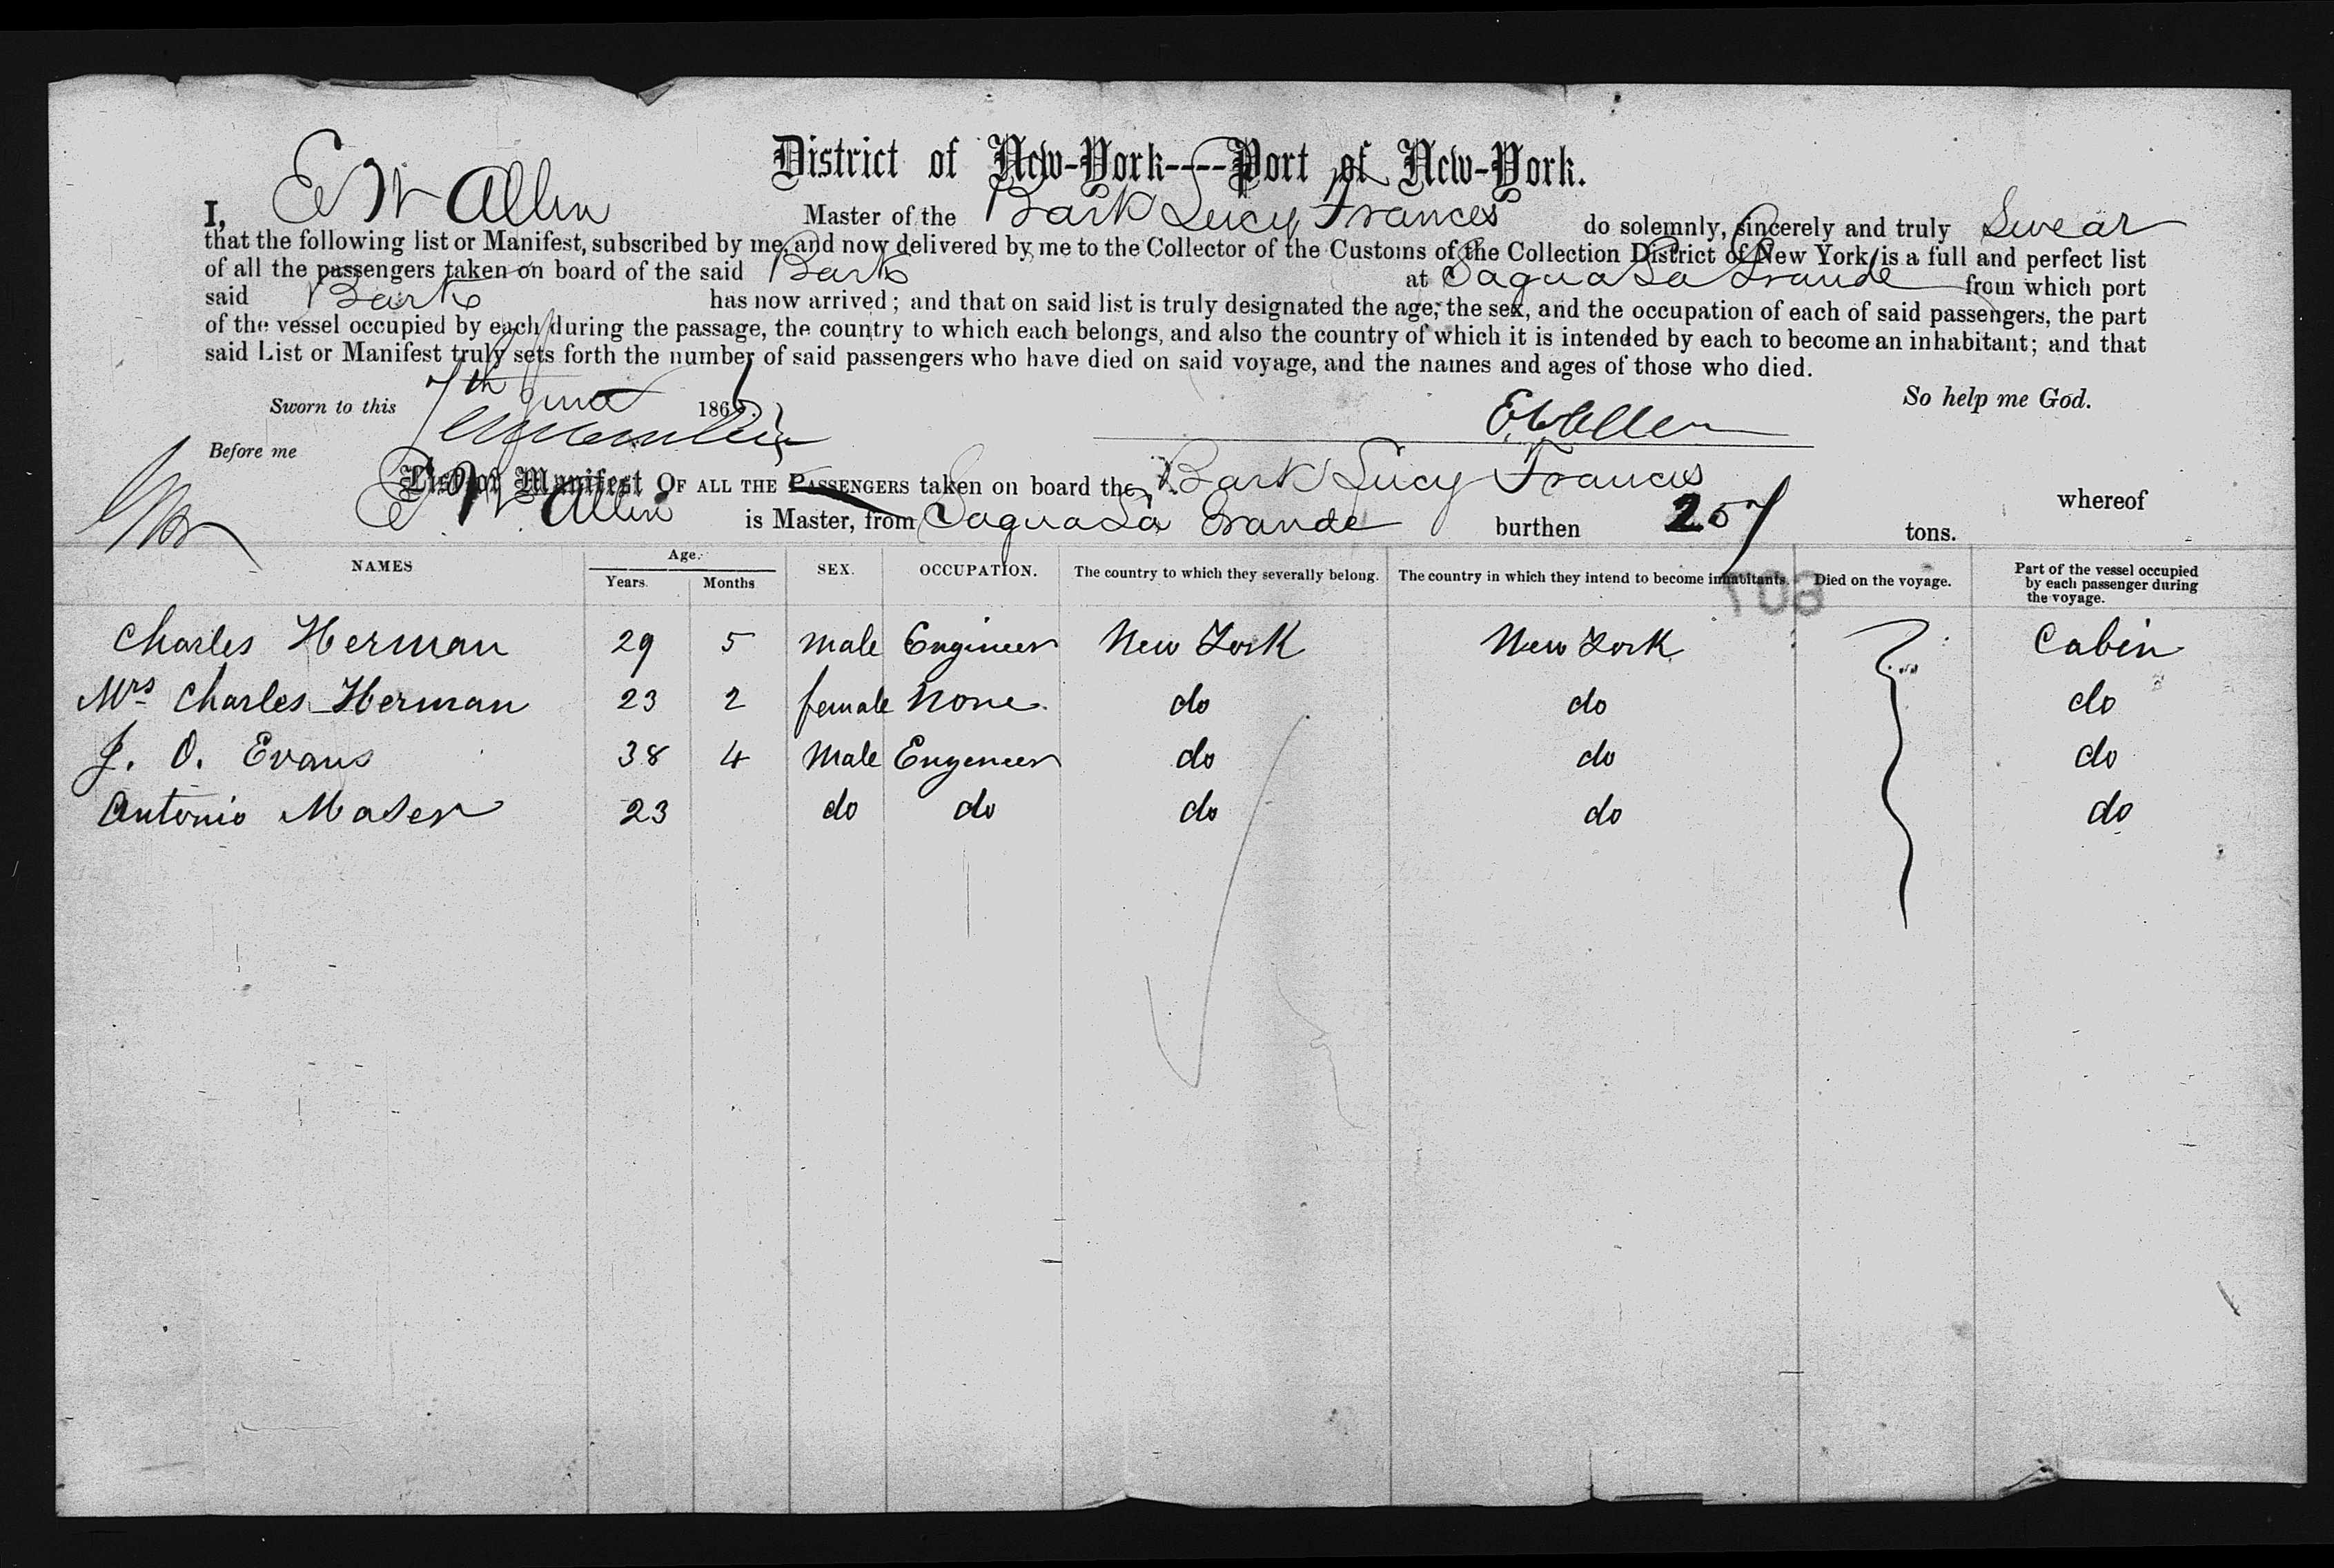 District of New-York----Port of New-York.
I, E W Allen Master of the Bark Lucy Frances do solemnly, sincerely and truly Swear
that the following list or Manifest, subscribed by me, and now delivered by me to the Collector of the Customs of the Collection District of New York, is a full and perfect list
of all the passengers taken on board of the said Bark at Sagua La Grande from which port
said Bark has now arrived; and that on said list is truly designated the age, the sex, and the occupation of each of said passengers, the part
of the vessel occupied by each during the passage, the country to which each belongs, and also the country of which it is intended by each to become an inhabitant; and that
said List or Manifest truly sets forth the number of said passengers who have died on said voyage, and the names and ages of those who died.
So help me God.
Sworn to this 7th June 186
Before me
E W Allen
List or Manifest OF ALL THE PASSENGERS taken on board the Bark Lucy Frances whereof
E W Allen is Master, from Sagua La Grande burthen 257 tons.
NAMES Age. Years. Months SEX. OCCUPATION. The country to which they severally belong. The country in which they intend to become inhabitants. Died on the voyage. Part of the vessel occupied by each passenger during the voyage.
Charles Herman 29 5 male Engineer New York New York Cabin
Mrs Charles Herman 23 2 female None do do do
J. O. Evans 38 4 Male Engeneer do do do
Antonio 23 do do do do do